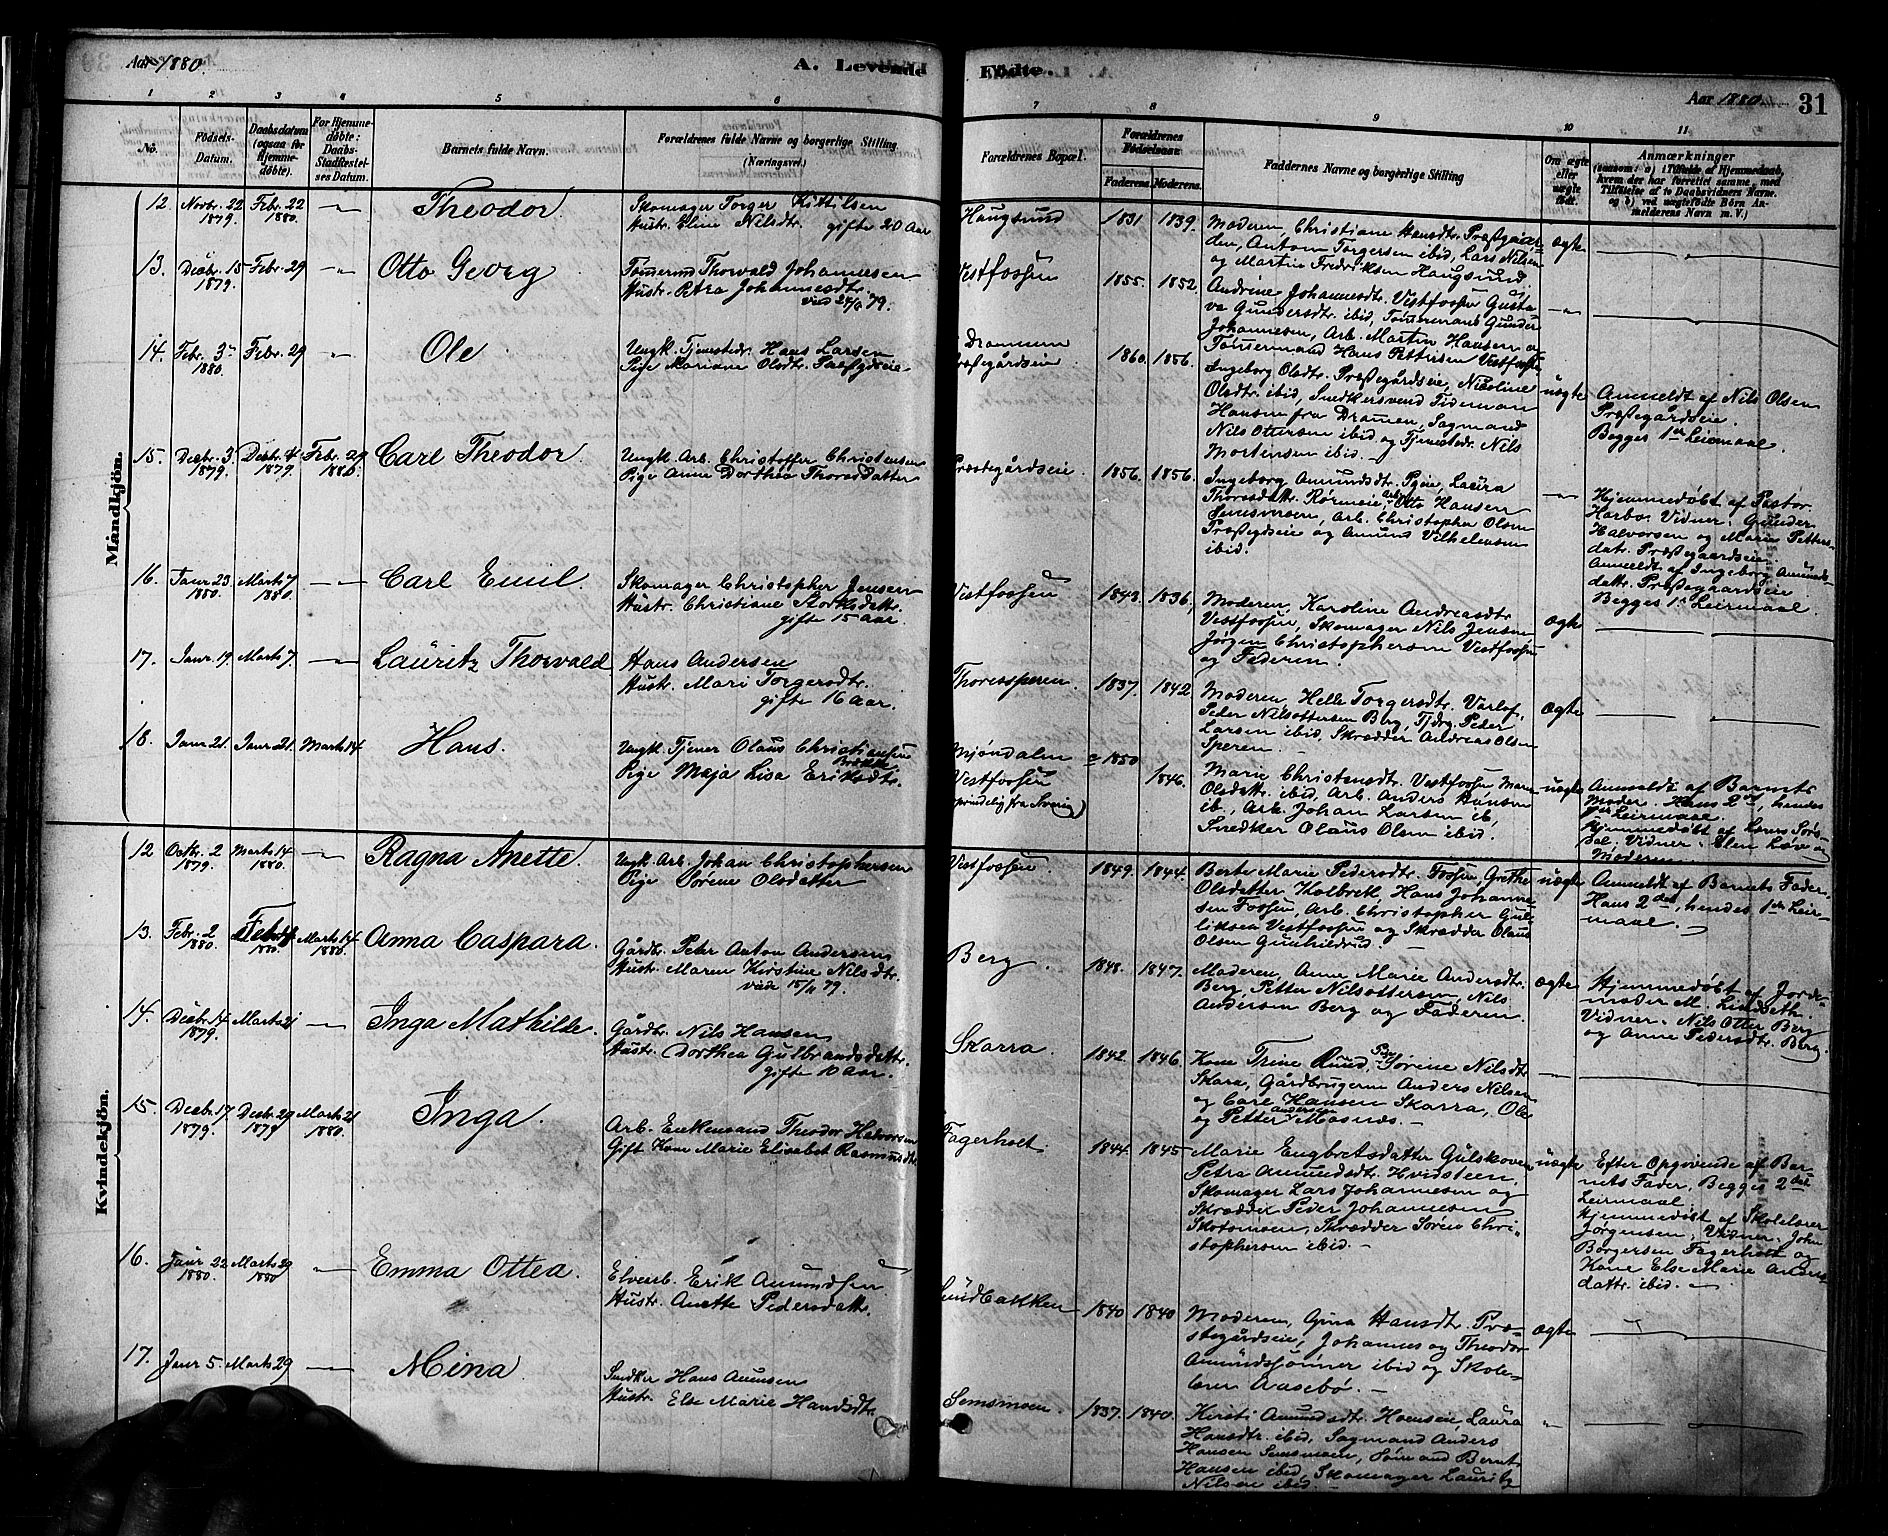 Aar 1880.
A. Levende Födte.
Aar 1880. 31
1 2 3 4 5 6 7 8 9 10 11
No. Födsels-Datum. Daabsdatum (ogsaa för Hjemme-döbte). For Hjemme-döbte: Daabs-Stadfæstel-ses Datum. Barnets fulde Navn. Forældrenes fulde Navne og borgerlige Stilling (Næringsvei.) Forældrenes Bopæl. Forældrenes Födselsaar Faderens. Moderens. Faddernes Navne og borgerlige Stilling Om ægte eller uægte födt. Anmærkninger
Mandkjön.
12. Novbr. 22 1879. Febr. 22 1880. —"— Theodor.
Skomager Torger Kittilsen
Hustr. Eline Nilsdtr. gifte 20 Aar
Haugsund 1831 1839.
Moderen, Christiane Hansdtr. Præstgaar-
den, Anton Torgersen ibid, Lars Nilsen
og Martin Fredriksen Haugsund.
ægte
13. Decbr. 15 1879. Febr. 29 —"— Otto Georg
Tømmermd Thorvald Johannesen
Hustr. Petra Johannesdtr.
Vestfossen 1855. 1852.
Andrine Johannesdtr. Vestfossen Gusta-
va Gundersdtr. ibid, Tømmermand Gunder
Johannesen, Arb. Martin Hansen og
Tømmermand Hans Pettersen Vestfossen
—"—
14. Febr. 3 1880. Febr. 29 —"— Ole
Ungk. Tjenestedr. Hans Larsen
Pige Mariane Olsdtr. Præstgdseie
Drammen
Præstegårdseie 1860. 1856.
Ingeborg Olsdtr. Præstegårdseie, Nicoline
Olsdtr. ibid, Snedkersvend Tideman
Hansen fra Drammen, Sagmand
Nils Ottersen ibid. og Tjenestedr. Nils
Mortensen ibid.
uægte
Anmeldt af Nils Olsen
Præstegårdseie.
Begges 1ste Leiermaal.
15. Decbr. 3 1879. Decbr. 4 1879. Febr. 29 1880. Carl Theodor
Ungk. Arb. Christoffer Christensen
Pige Anne Dorthea Thoresdatter
Præstegårdseie. 1856. 1856.
Ingeborg Amundsdtr. Pgeie, Laura
Thoresdattr. Arb. Otto Hansen
Semsmoen, Arb. Christopher Olsen
Præstgdseie og Amund Vilhelmsen
ibid.
—"—
Hjemmedøbt af Pastor
Harbo. Vidner: Gunder
Halvorsen og Marie Petters-
datr. Præstegaardseie
Anmeldt af Ingeborg Amunds-
datter. Præstegaardseie
Begges 1ste Leiermaal.
16. Janr. 23 1880. Marts 7 1880. —"— Carl Emil
Skomager Christopher Jensen
Hustr. Christiane
gifte 15 aar.
Vestfossen 1843. 1836,
Moderen, Karoline Andreasdtr
Vestfossen, Skomager Nils Jensen
Jørgen Christophersen Vestfossen
og Faderen.
ægte
17. Janr. 19. Marts 7. —"— Lauritz Thorvald
Hans Andersen
Hustr. Mari Torgersdtr.
gifte 16 aar.
1837. 1842
Moderen, Helle Torgersdtr.
Peder Nilsottersen Berg, Peder
Larsen ibid. Skrædder Andreas Olsen
Speren.
Ægte
18. Janr. 21. Janr. 21. Marts 14 Hans.
Ungk. Tjener Olaus Christiansen
Pige Maja Lisa Eriksdtr.
Mjøndalen 1850
Vestfossen 1846.
Marie Christensdtr. Vestfossen Maren
Olsdattr. ibid, Arb. Anders Hansen
ib., Arb. Johan Larsen ib,
Snedker Olaus Olsen ibid.
uægte
Anmeldt af Barnets
Moder. Hans 2det, hendes
1ste Leiermaal.
Kvindekjön.
12 Octbr. 2 1879. Marts 14 1880. —"— Ragna Anette.
Ungk. Arb. Johan Christophersen
Pige Sørene Olsdatter
Vestfossen 1849. 1844.
Berte Marie Pedersdtr. Fossen, Grethe
Olsdatter Kolbræk, Hans Johanne-
sen Fossen, Arb. Christopher Gul-
liksen Vestfossen og Skrædder Olaus
Olsen Gunhildrud.
uægte
Anmeldt af Barnets Fader.
Hans 2det, hendes 1ste Leier-
maal.
13. Febr. 2 1880. Febr. 1880. Marts 14 1880. Anna Caspara.
Gårdbr. Peter Anton Andersen
Hustr. Maren Kirstine Nilsdtr.
viede 15/11 79.
Berg 1848. 1847.
Moderen, Anne Marie Andersdtr.
Berg, Petter Nilsottersen, Nils
Andersen Berg og Faderen.
ægte
Hjemmedøbt af Jorde-
moder M. Lindseth.
Vidner: Nils Otter Berg
og Anne Pedersdtr. Berg.
14. Decbr. 14 1879. Marts 21 —"— Inga Mathilde.
Gårdbr. Nils Hansen
Hustr. Dorthea Gulbrandsdattr.
gifte 10 Aar.
Skarra. 1842. 1846.
Kone Trine Ruud, Pige Sørene Nilsdtr.
Skara, Gårdbrugerne Anders Nilsen
og Carl Hansen Skarra, Ole
og Petter Andersen Mosnæs.
—"—
15 Decbr. 17 1879. Decbr. 29 1879 Marts 21 1880. Inga.
Arb. Enkemand Theodor Halvorsen
Gift Kone Marie Elisabet Rasmusdtr
Fagerholt. 1844. 1845
Marie Engbretsdatter Gulskoven
Petra Amundsdtr. Hvidsteen,
Skomager Lars Johannesen og
Skrædder Peder Johannesen
Skotsmoen, Skrædder Søren Chri-
stophersen ibid.
uægte
Efter Opgivende af Bar-
nets Fader, Begges 2det
Leiermaal.
Hjemmedøbt af Skolelærer
Jørgensen. Vidner: John
Borgersen Fagerholt og
Kone Else Marie Anders-
dattr. ibid.
16. Janr. 22 1880. Marts 29 1880 —"— Emma Ottea.
Elvearb. Erik Amundsen
Hustr. Anette Pedersdattr.
Sundbakken 1840 1840
Moderen, Gina Hansdtr. Præ-
stegårdseie, Johannes og Theodor
Amundssønner ibid og Skole-
lærer Aasebø.
ægte
17. Janr 5. Marts 29 —"— Mina.
Snedker Hans Amundsen
Hustr. Else Marie Hansdtr.
Semsmoen. 1837. 1840.
Kirsti Amundsdtr. Hoenseie Laura
Hansdtr. ibid, Sagmand Anders
Hansen Semsmoen, Bernt
Hansen ibid, Skomager Lauritz
Nilsen ibid.